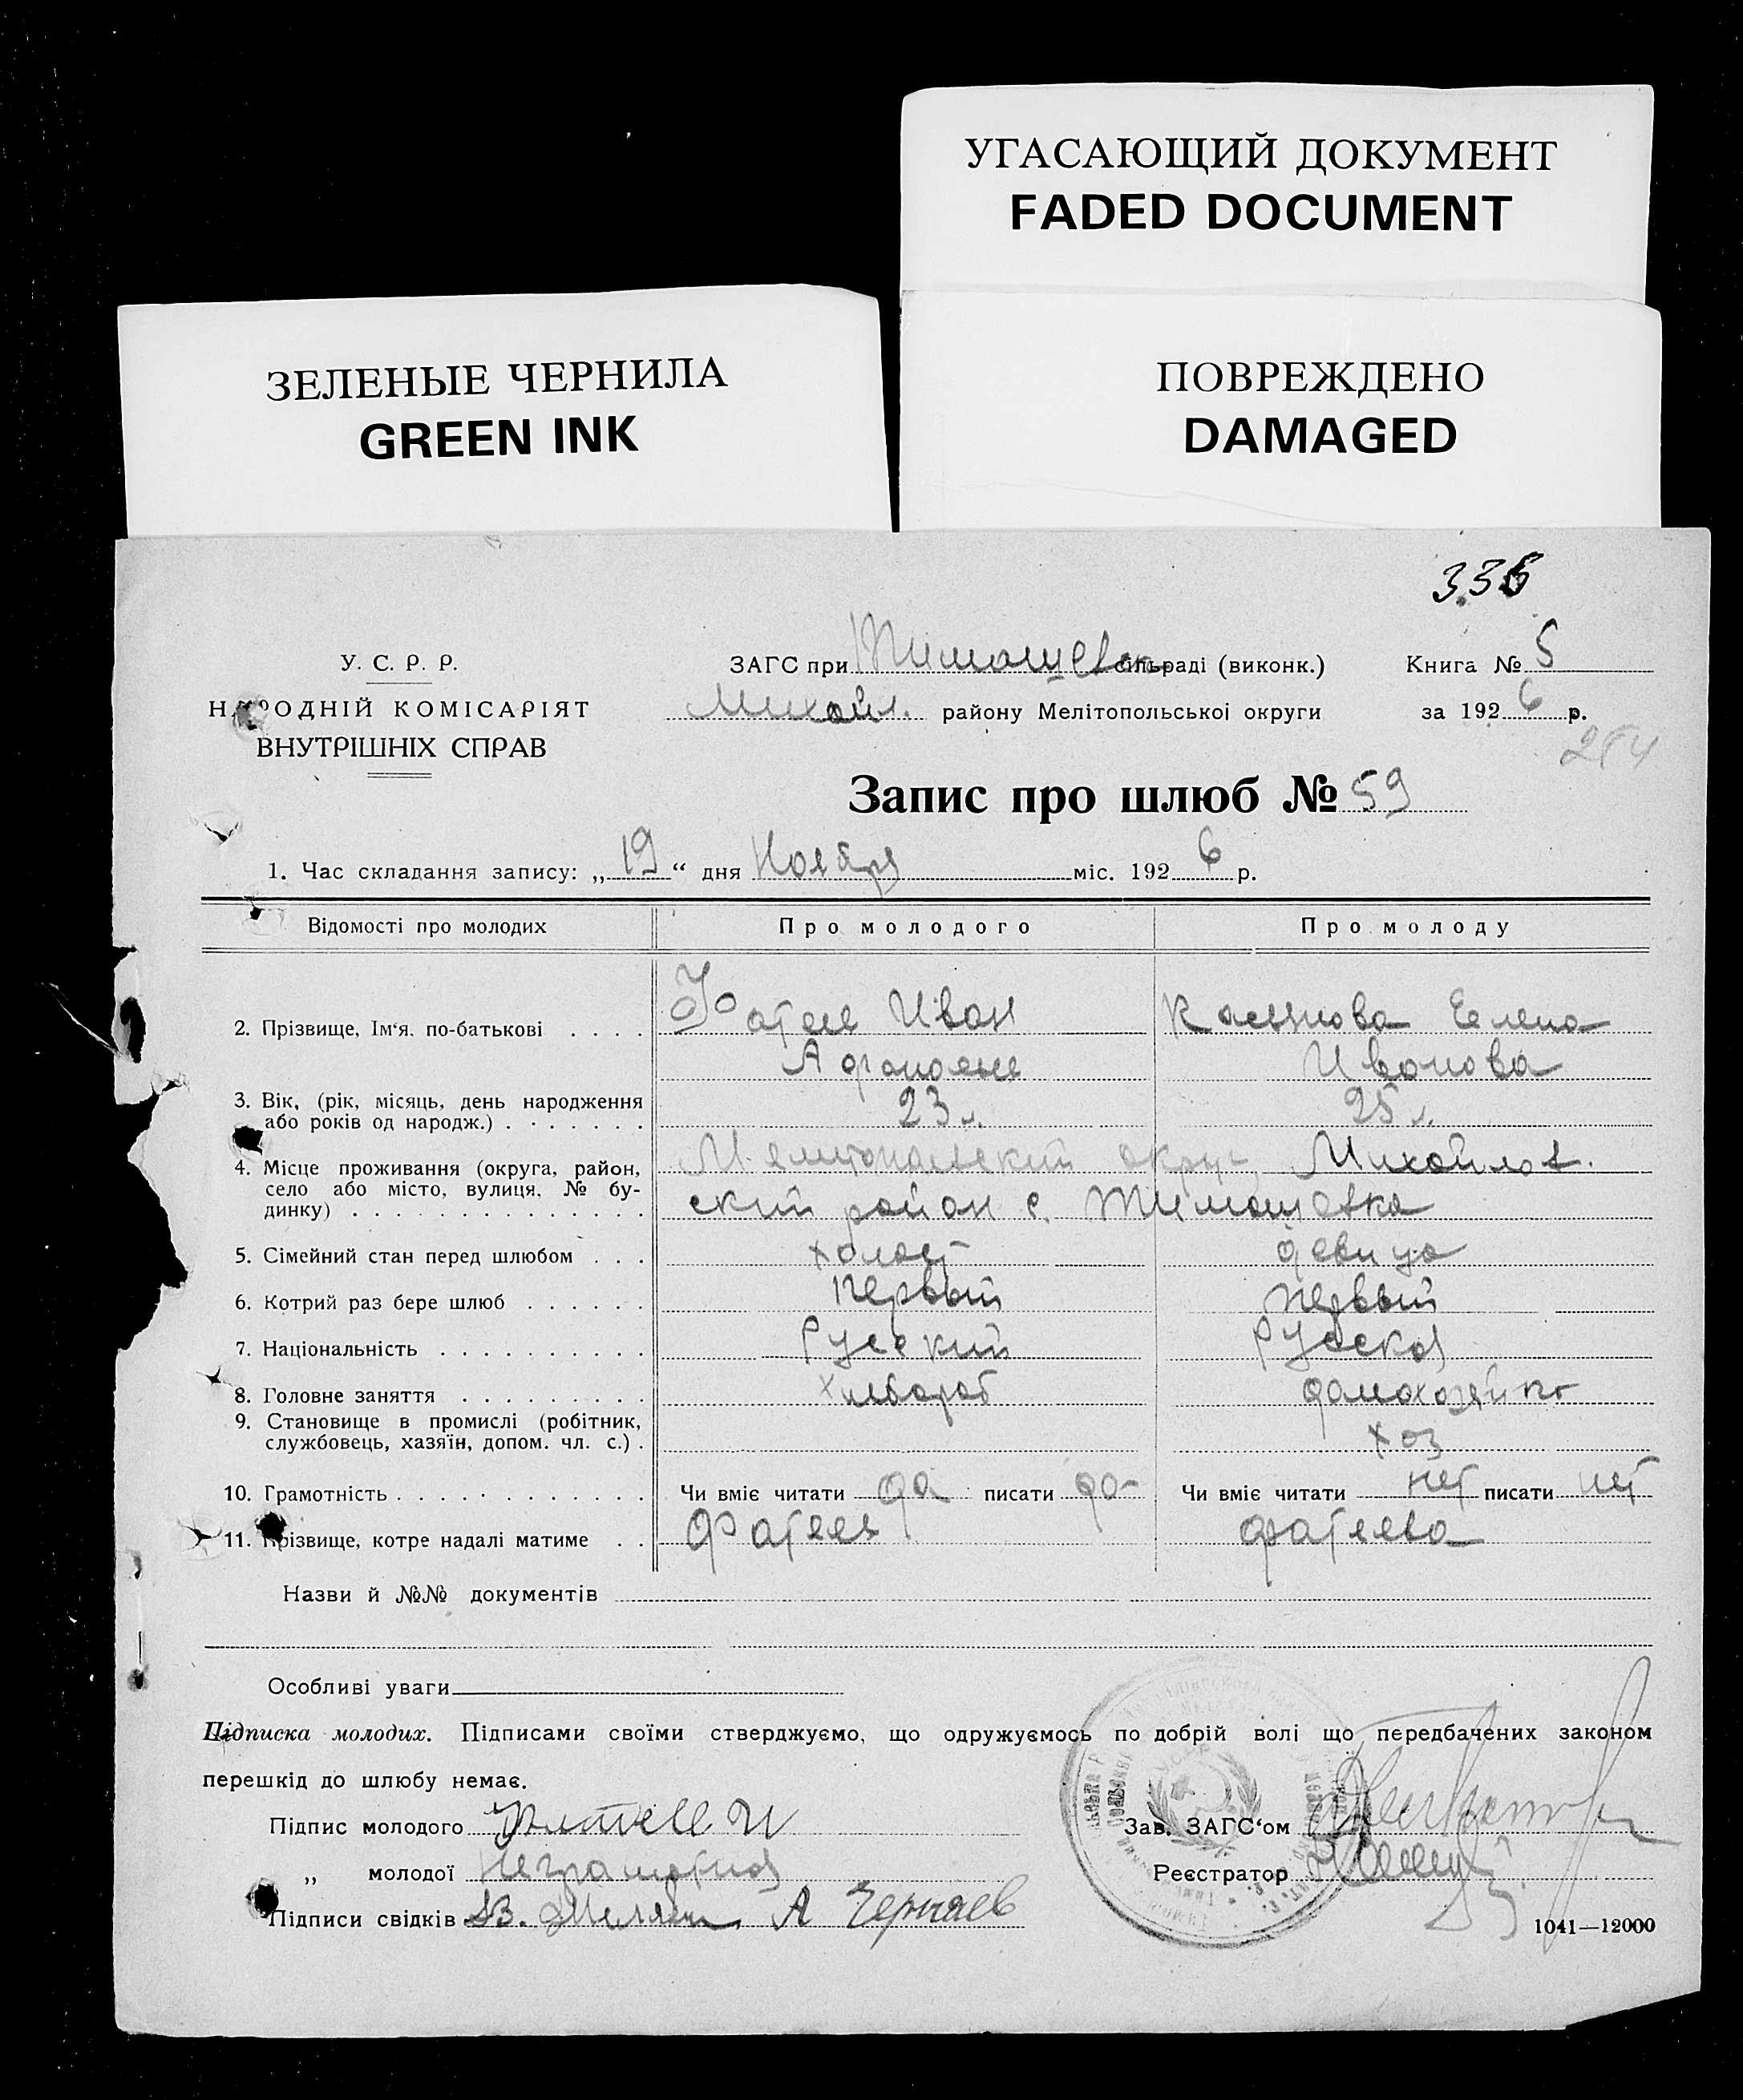 УГАСАЮЩИЙ ДОКУМЕНТ
FADED DOCUMENT
ЗЕЛЕНЫЕ ЧЕРНИЛА
GREEN INK
ПОВРЕЖДЕНО
DAMAGED
336
У. С. Р. Р.
НАРОДНІЙ КОМІСАРІЯТ
ВНУТРІШНІХ СПРАВ
ЗАГС при Тимошевск сільраді (виконк.)
Михайл. району Мелітопольської округи
Книга № 5
за 1926 р.
254
Запис про шлюб № 59
1. Час складання запису: „19“ дня Ноября міс. 1926 р.
Відомості про молодих Про молодого Про молоду
2. Прізвище, Ім‘я, по-батькові . . . . Фатеев Иван Касьянова Елена
Афанасьев Иванова
3. Вік, (рік, місяць, день народження
або років од народж.) . . . . . . . 23 л. 25 л.
4. Місце проживання (округа, район, Мелитопольский округ, Михайлов-
село або місто, вулиця, № бу- ский район с. Тимошевка
динку) . . . . . . . . . . . . . .
5. Сімейний стан перед шлюбом . . . холост девица
6. Котрий раз бере шлюб . . . . . . Первый первый
7. Національність . . . . . . . . . . Русский Русская
8. Головне заняття . . . . . . . . . Хлебороб домохозяйка
9. Становище в промислі (робітник,
службовець, хазяїн, допом. чл. с.) . Хоз
10. Грамотність . . . . . . . . . . . . Чи вміє читати да писати да Чи вміє читати нет писати нет
11. Прізвище, котре надалі матиме . . Фатеев Фатеева
Назви й №№ документів
Особливі уваги
Підписка молодих. Підписами своїми стверджуємо, що одружуємось по добрій волі що передбачених законом
перешкід до шлюбу немає.
Підпис молодого Фатеев И
Зав. ЗАГС‘ом
„ молодої Неграмотная
Реєстратор
Підписи свідків А Черняев
1041—12000